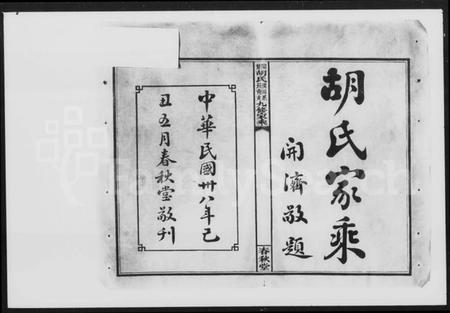 胡氏家乘
開濟敬題
胡氏九修家乘
春秋堂
中華民國卅八年己
丑五月春秋堂敬刊
FamilySearch